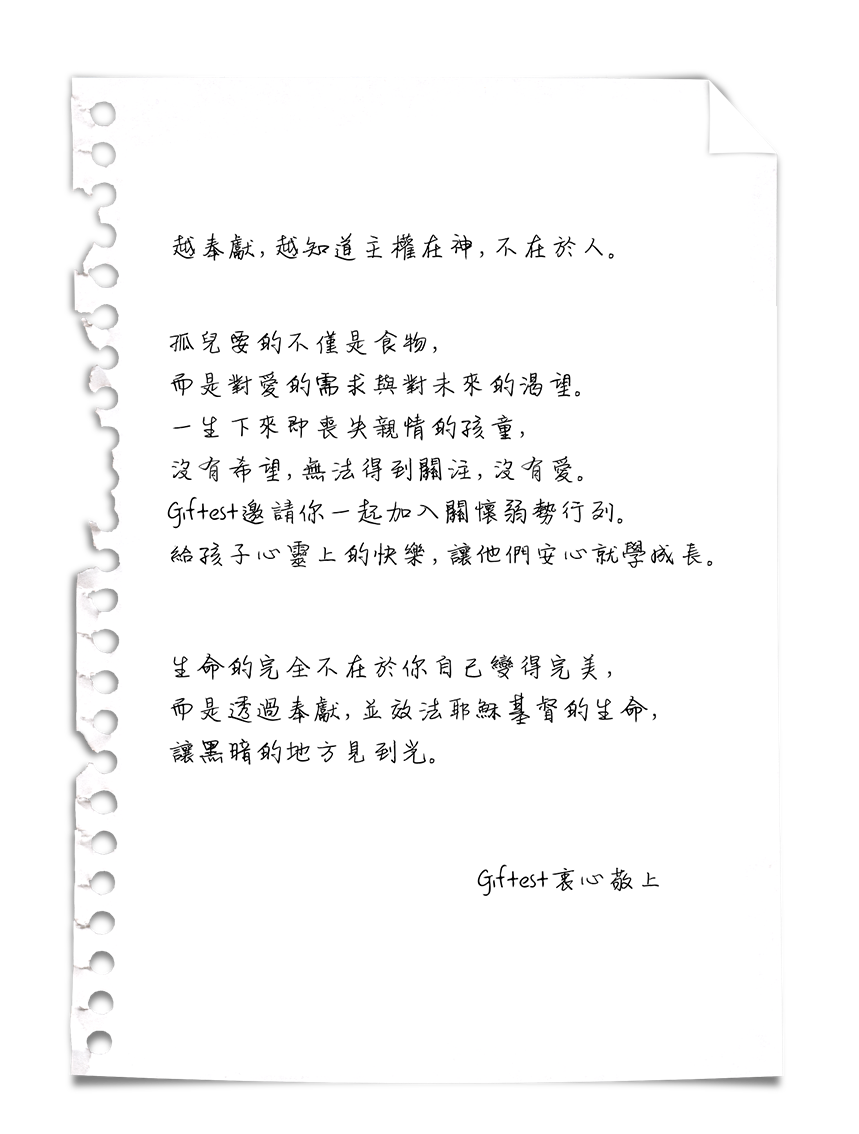 越奉獻,越知道主權在神,不在於人。
孤兒要的不僅是食物,
而是對愛的需求與對未來的渴望。
一生下來即喪失親情的孩童,
沒有希望,無法得到關注,沒有愛。
Giftest邀請你一起加入關懷弱勢行列。
給孩子心靈上的快樂,讓他們安心就學成長。
生命的完全不在於你自己變得完美,
而是透過奉獻,並效法耶穌基督的生命,
讓黑暗的地方見到光。
Giftest衷心敬上